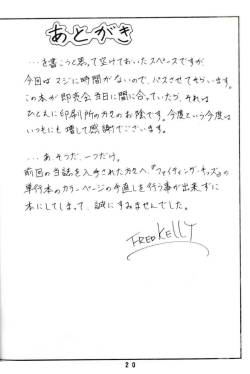 あとがき
…を書こうと思って空けておいたスペースですが、
今回はマジに時間がないので、パスさせてもらいます。
この本が即売会当日に間に合っていたら、それは
ひとえに印刷所の方々のお陰です。今度という今度は
いつもにも増して感謝でございます。
…あ、そうだ、一つだけ。
前回の当誌を入手された方々へ。『ファイティング・キッズ』の
単行本のカラーページの手直しを行う事が出来ずに
本にしてしまって、誠にすみませんでした。
FRED KELLY
20